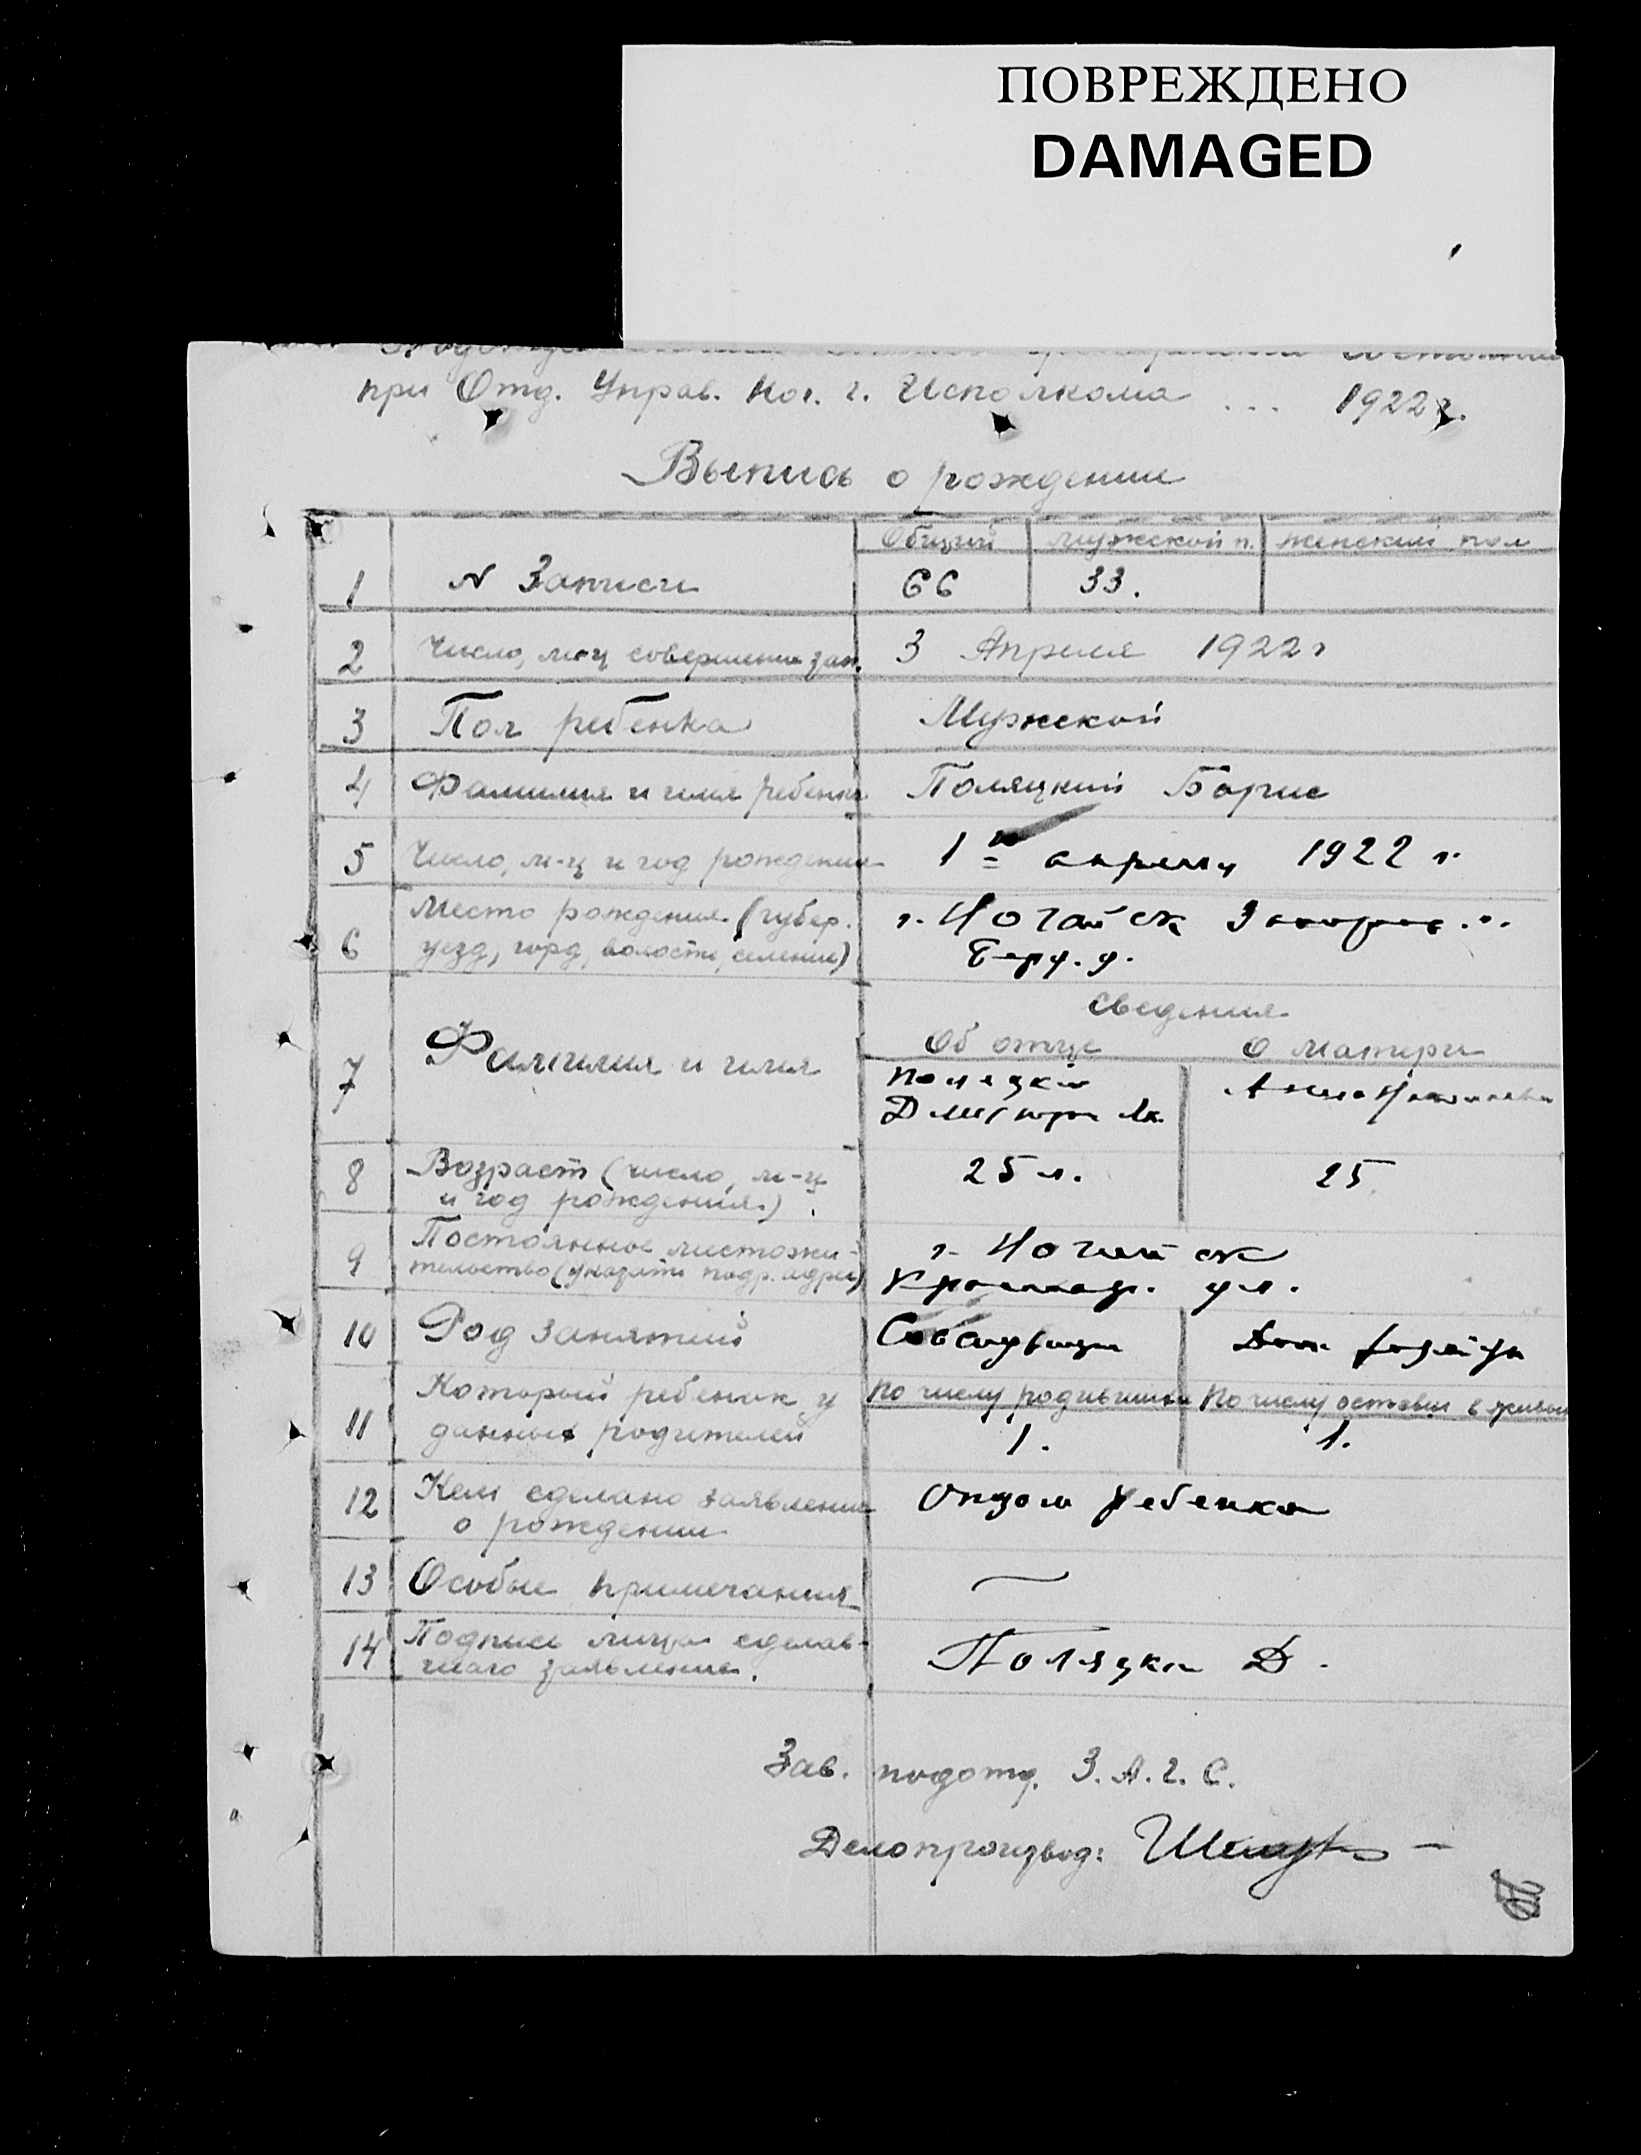 ПОВРЕЖДЕНО
DAMAGED
при Отд. Управ. Ног. г. Исполкома ... 1922 г.
Выпись о рождении
Общий мужской п. женский пол
1 N Записи 66 33.
2 Число, м-ц совершения зап. 3 Апреля 1922 г
3 Пол ребенка Мужской
4 Фамилия и имя ребенка Поляцкий Борис
5 Число, м-ц и год рождения 1го апреля 1922 г.
6 Место рождения (губер. г. Ногайск
уезд, город, волость, селение) Берд. у.
Сведения
Об отце О матери
7 Фамилия и имя Поляцкий Анна
Дмитрий
8 Возраст (число, м-ц 25 л. 25
и год рождения)
9 Постоянное местожи- г. Ногайск
тельство (указать подр. адрес) ул.
10 Род занятий Совслужащий Дом.
11 Который ребенок у По числу родившихся По числу оставш. в живых
данных родителей 1. 1.
12 Кем сделано заявление Отцом ребенка
о рождении
13 Особые примечания —
14 Подпись лица сделав- Поляцкий Д.
шаго заявление.
Зав. подотд. З.А.Г.С.
Делопроизвод: